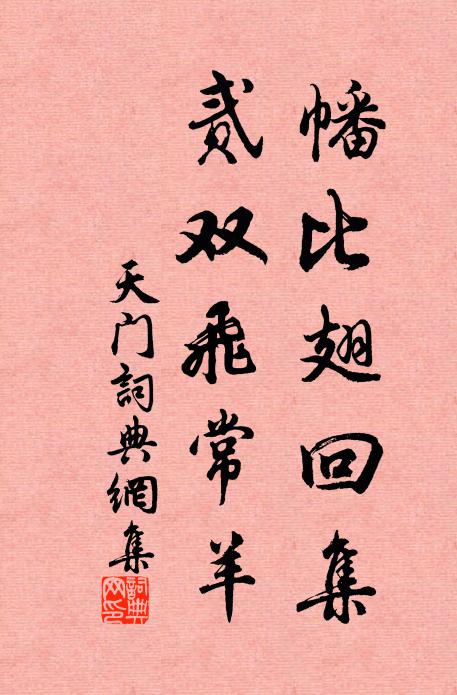 幡比翅回集
贰双飛常羊
天门詞典網集
詞典网印